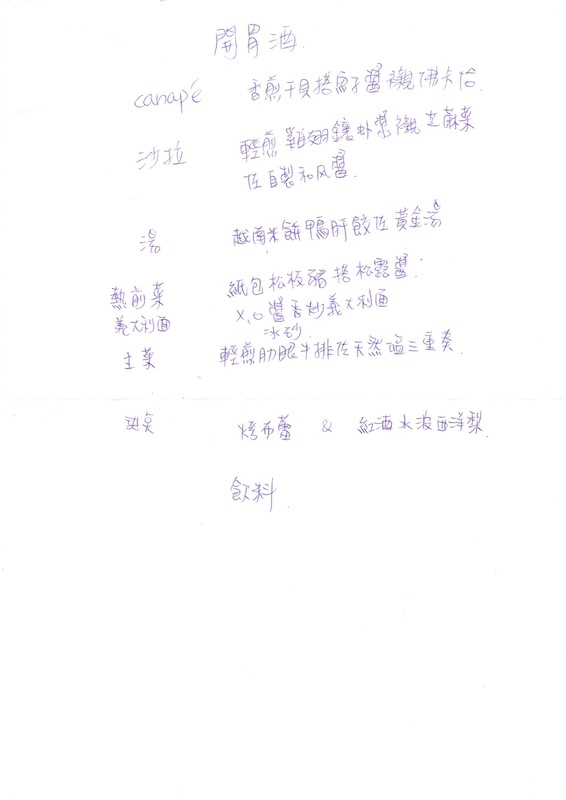 開胃酒.
canapé 香煎干貝搭魚子醬襯佛卡恰.
沙拉 輕煎雞翅鑲 襯芝蔴葉
佐自製和风醬.
湯 越南米餅鴨肝餃佐黃金湯
熱前菜 紙包松板豬搭松露醬.
義大利面 X.O醬香炒義大利面
冰砂
主菜 輕煎肋眼牛排佐天然鹽三重奏.
甜点 烤布蕾 & 紅酒水波西洋梨.
飲料